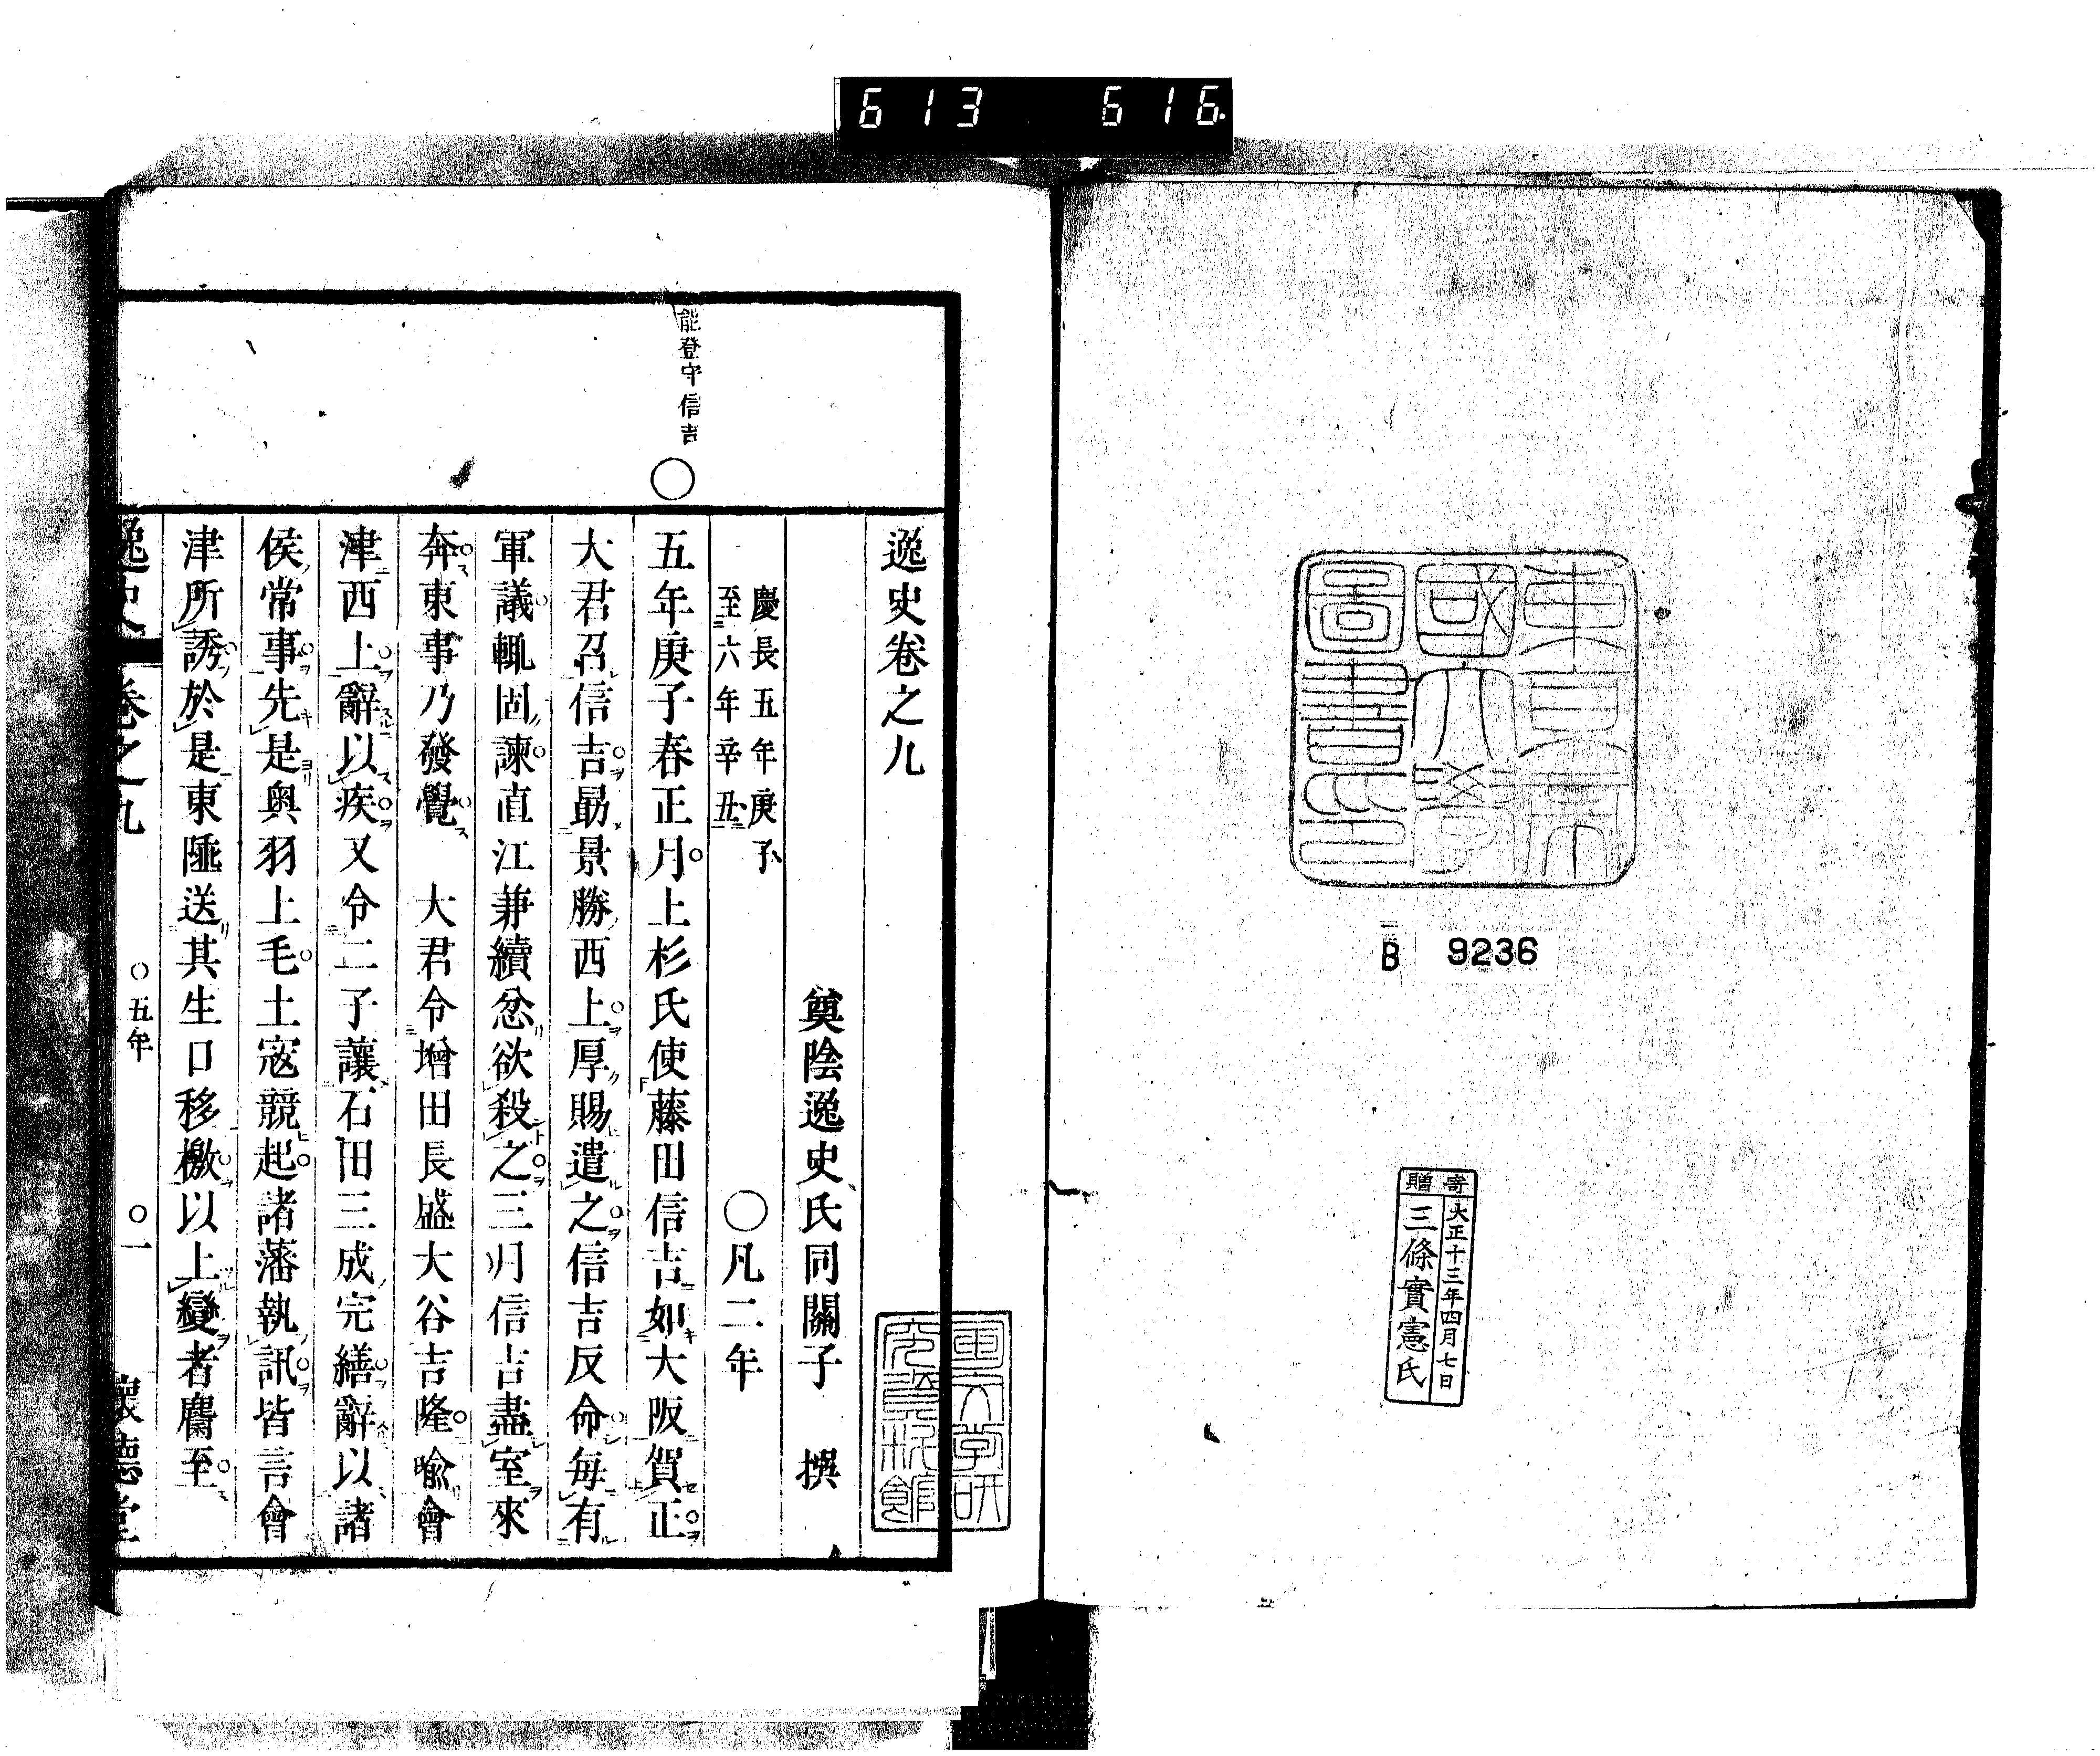 613 616.
東京帝
國大學
圖書印
B 9236
寄贈
大正十三年四月七日
三條實憲氏
逸史卷之九
奠陰逸史氏同關子 撰
慶長五年庚子
至六年辛丑
〇凡二年
能登守信吉
〇
五年庚子春正月上杉氏使藤田信吉如大阪賀正
大君召信吉勗景勝西上厚賜遣之信吉反命每有
軍議輒固諫直江兼續忿欲殺之三月信吉盡室來
奔東事乃發覺 大君令增田長盛大谷吉隆喩會
津西上辭以疾又令二子讓石田三成完繕辭以諸
侯常事先是奧羽上毛土寇競起諸藩執訊皆言會
津所誘於是東陲送其生口移檄以上變者麕至
逸史 卷之九 〇五年 〇一 懷德堂